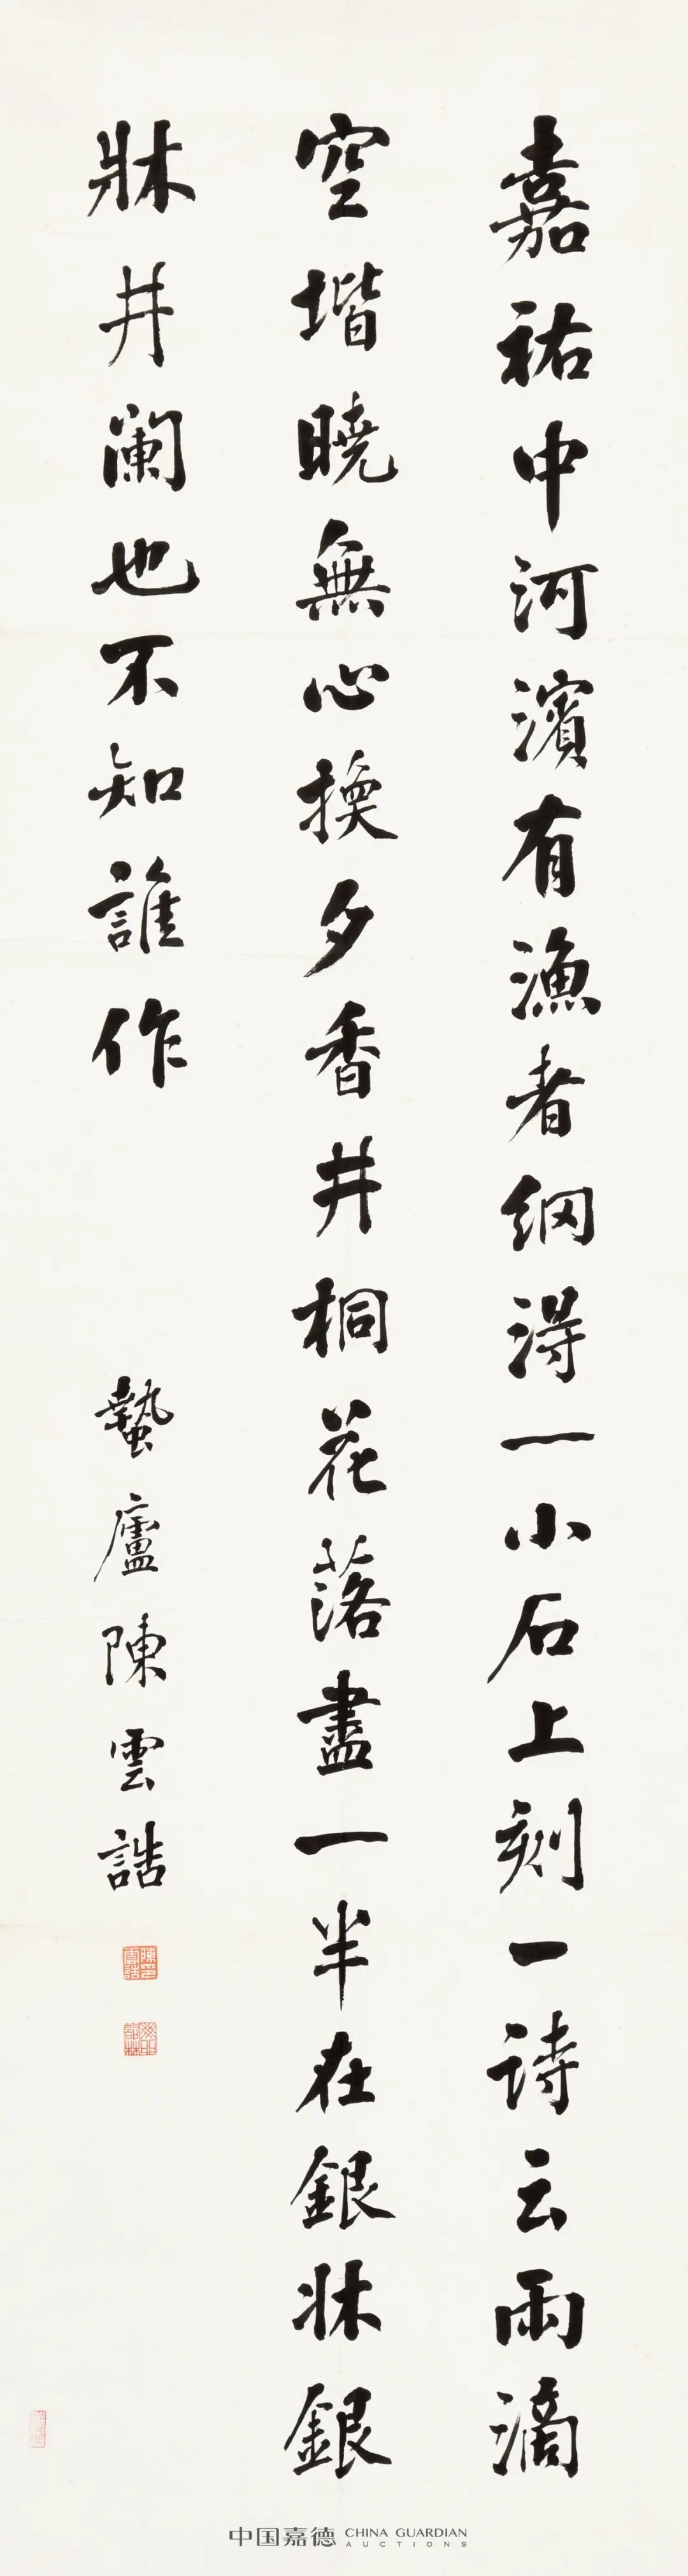 嘉祐中河濱有漁者網淂一小石上刻一詩云雨滴
空堦曉無心換夕香井桐花落盡一半在銀牀銀
牀井闌也不知誰作
蟄廬陳雲誥
中国嘉德 CHINA GUARDIAN AUCTIONS